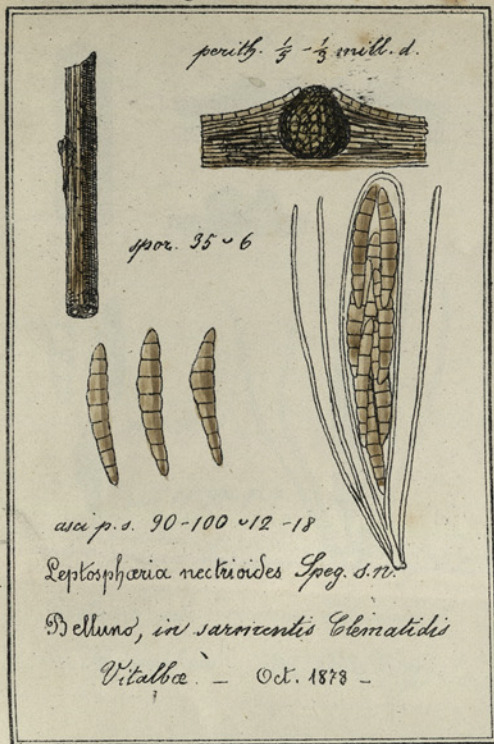 perith. 1/5 - 1/3 mill. d.
spor. 35 ᴗ 6
asci p. s. 90-100 ᴗ 12 -18
Leptosphæria nectrioides Speg. s. n.
Belluno, in sarmentis Clematidis
Vitalbæ. — Oct. 1878 —